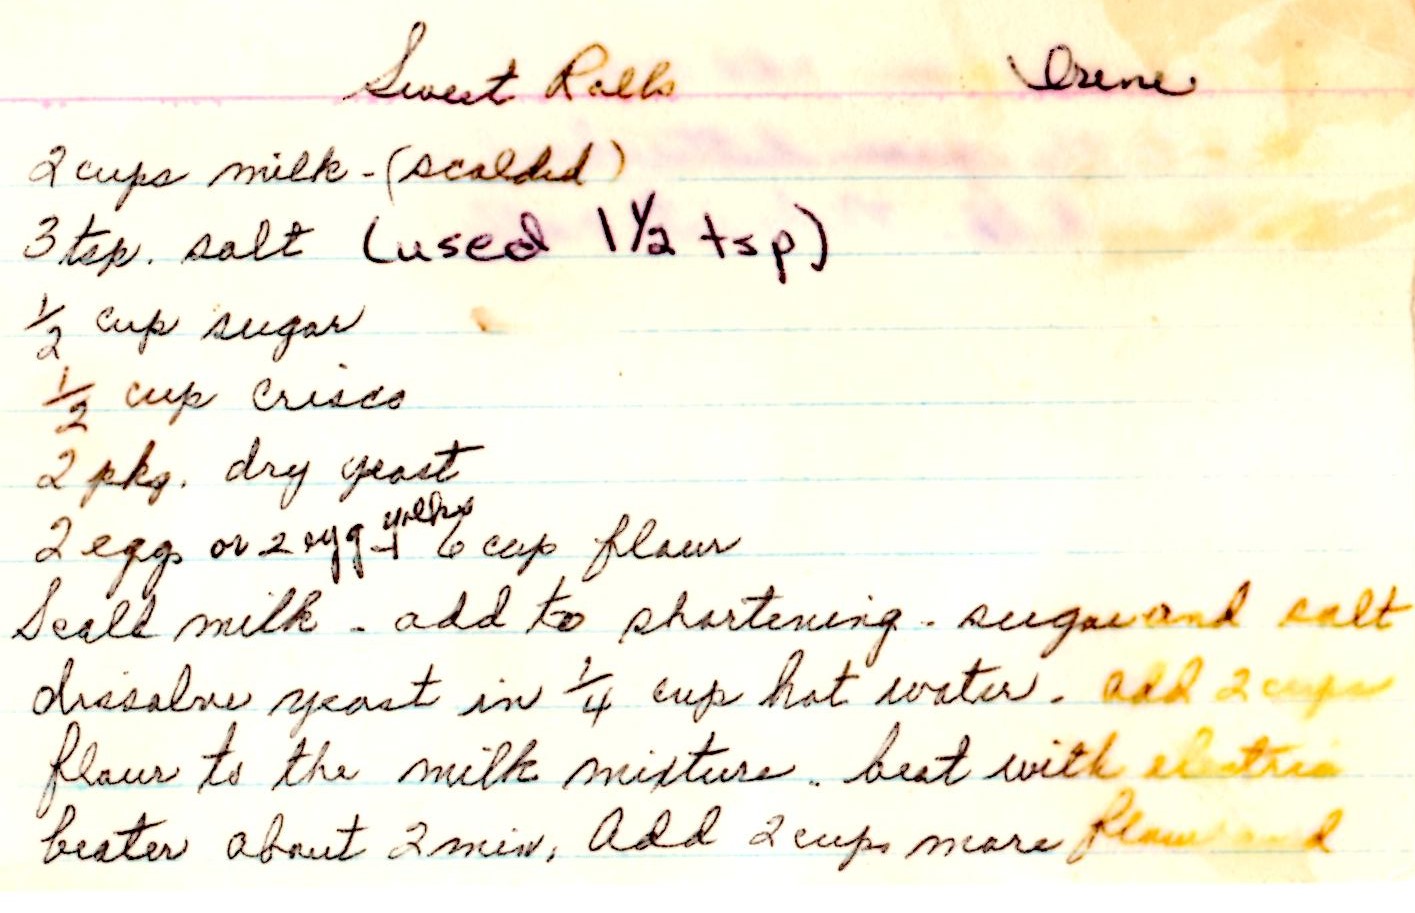 Sweet Rolls Irene
2 cups milk - (scalded)
3 tsp. salt (used 1 1/2 tsp)
1/2 cup sugar
1/2 cup Crisco
2 pkg. dry yeast
2 eggs or 2 egg yolks 6 cup flour
Scald milk - add to shortening - sugar and salt
dissolve yeast in 1/4 cup hot water. add 2 cups
flour to the milk mixture. beat with electric
beater about 2 min. Add 2 cups more flour and